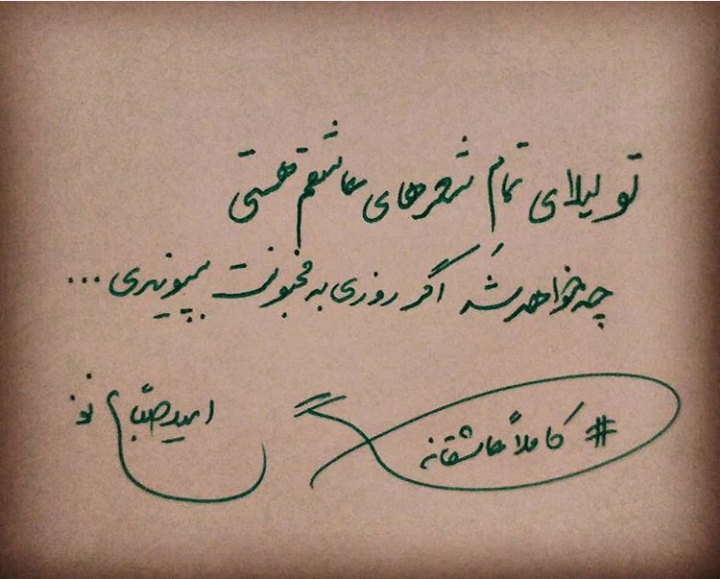 تو لیلای تمام شعرهای عاشقم هستی
چه خواهد شد اگر روزی به مجنونت بپیوندی ...
#کاملاً عاشقانه
امید صباغ نو